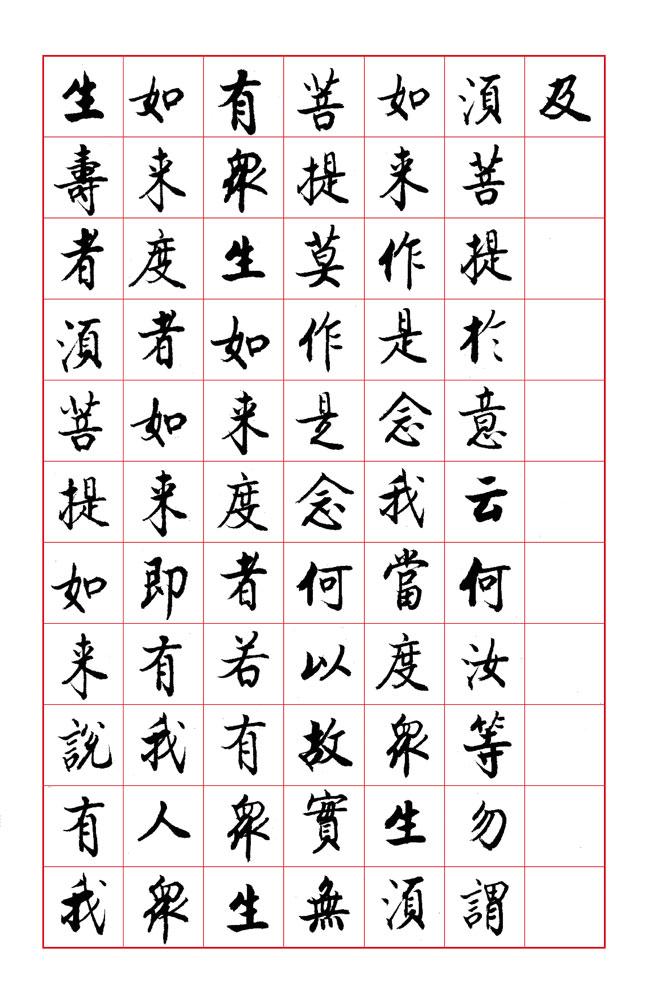 及
須菩提於意云何汝等勿謂
如来作是念我當度衆生須
菩提莫作是念何以故實無
有衆生如来度者若有衆生
如来度者如来即有我人衆
生壽者須菩提如来說有我